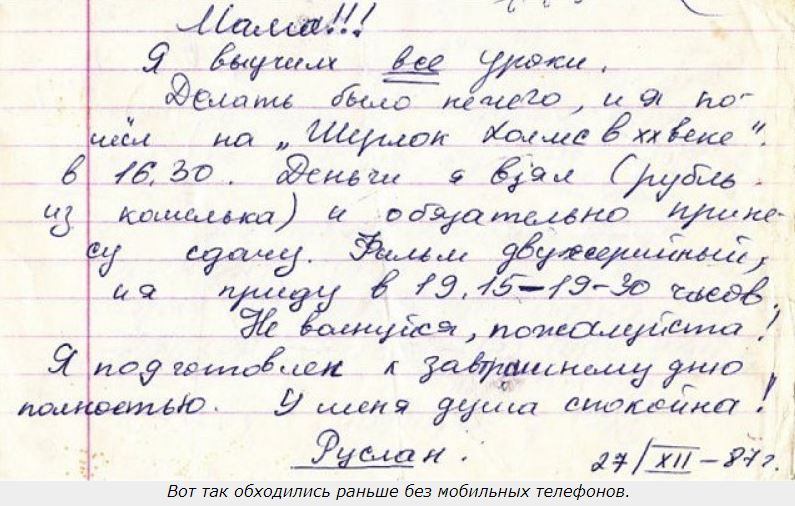 Мама!!!
Я выучил все уроки.
Делать было нечего, и я по-
шёл на „Шерлок Холмс в XX веке".
в 16.30. Деньги я взял (рубль
из кошелька) и обязательно прине-
су сдачу. Фильм двухсерийный,
и я приду в 19.15–19-30 часов.
Не волнуйся, пожалуйста!
Я подготовлен к завтрашнему дню
полностью. У меня душа спокойна!
Руслан.
27/XII – 87 г.
Вот так обходились раньше без мобильных телефонов.